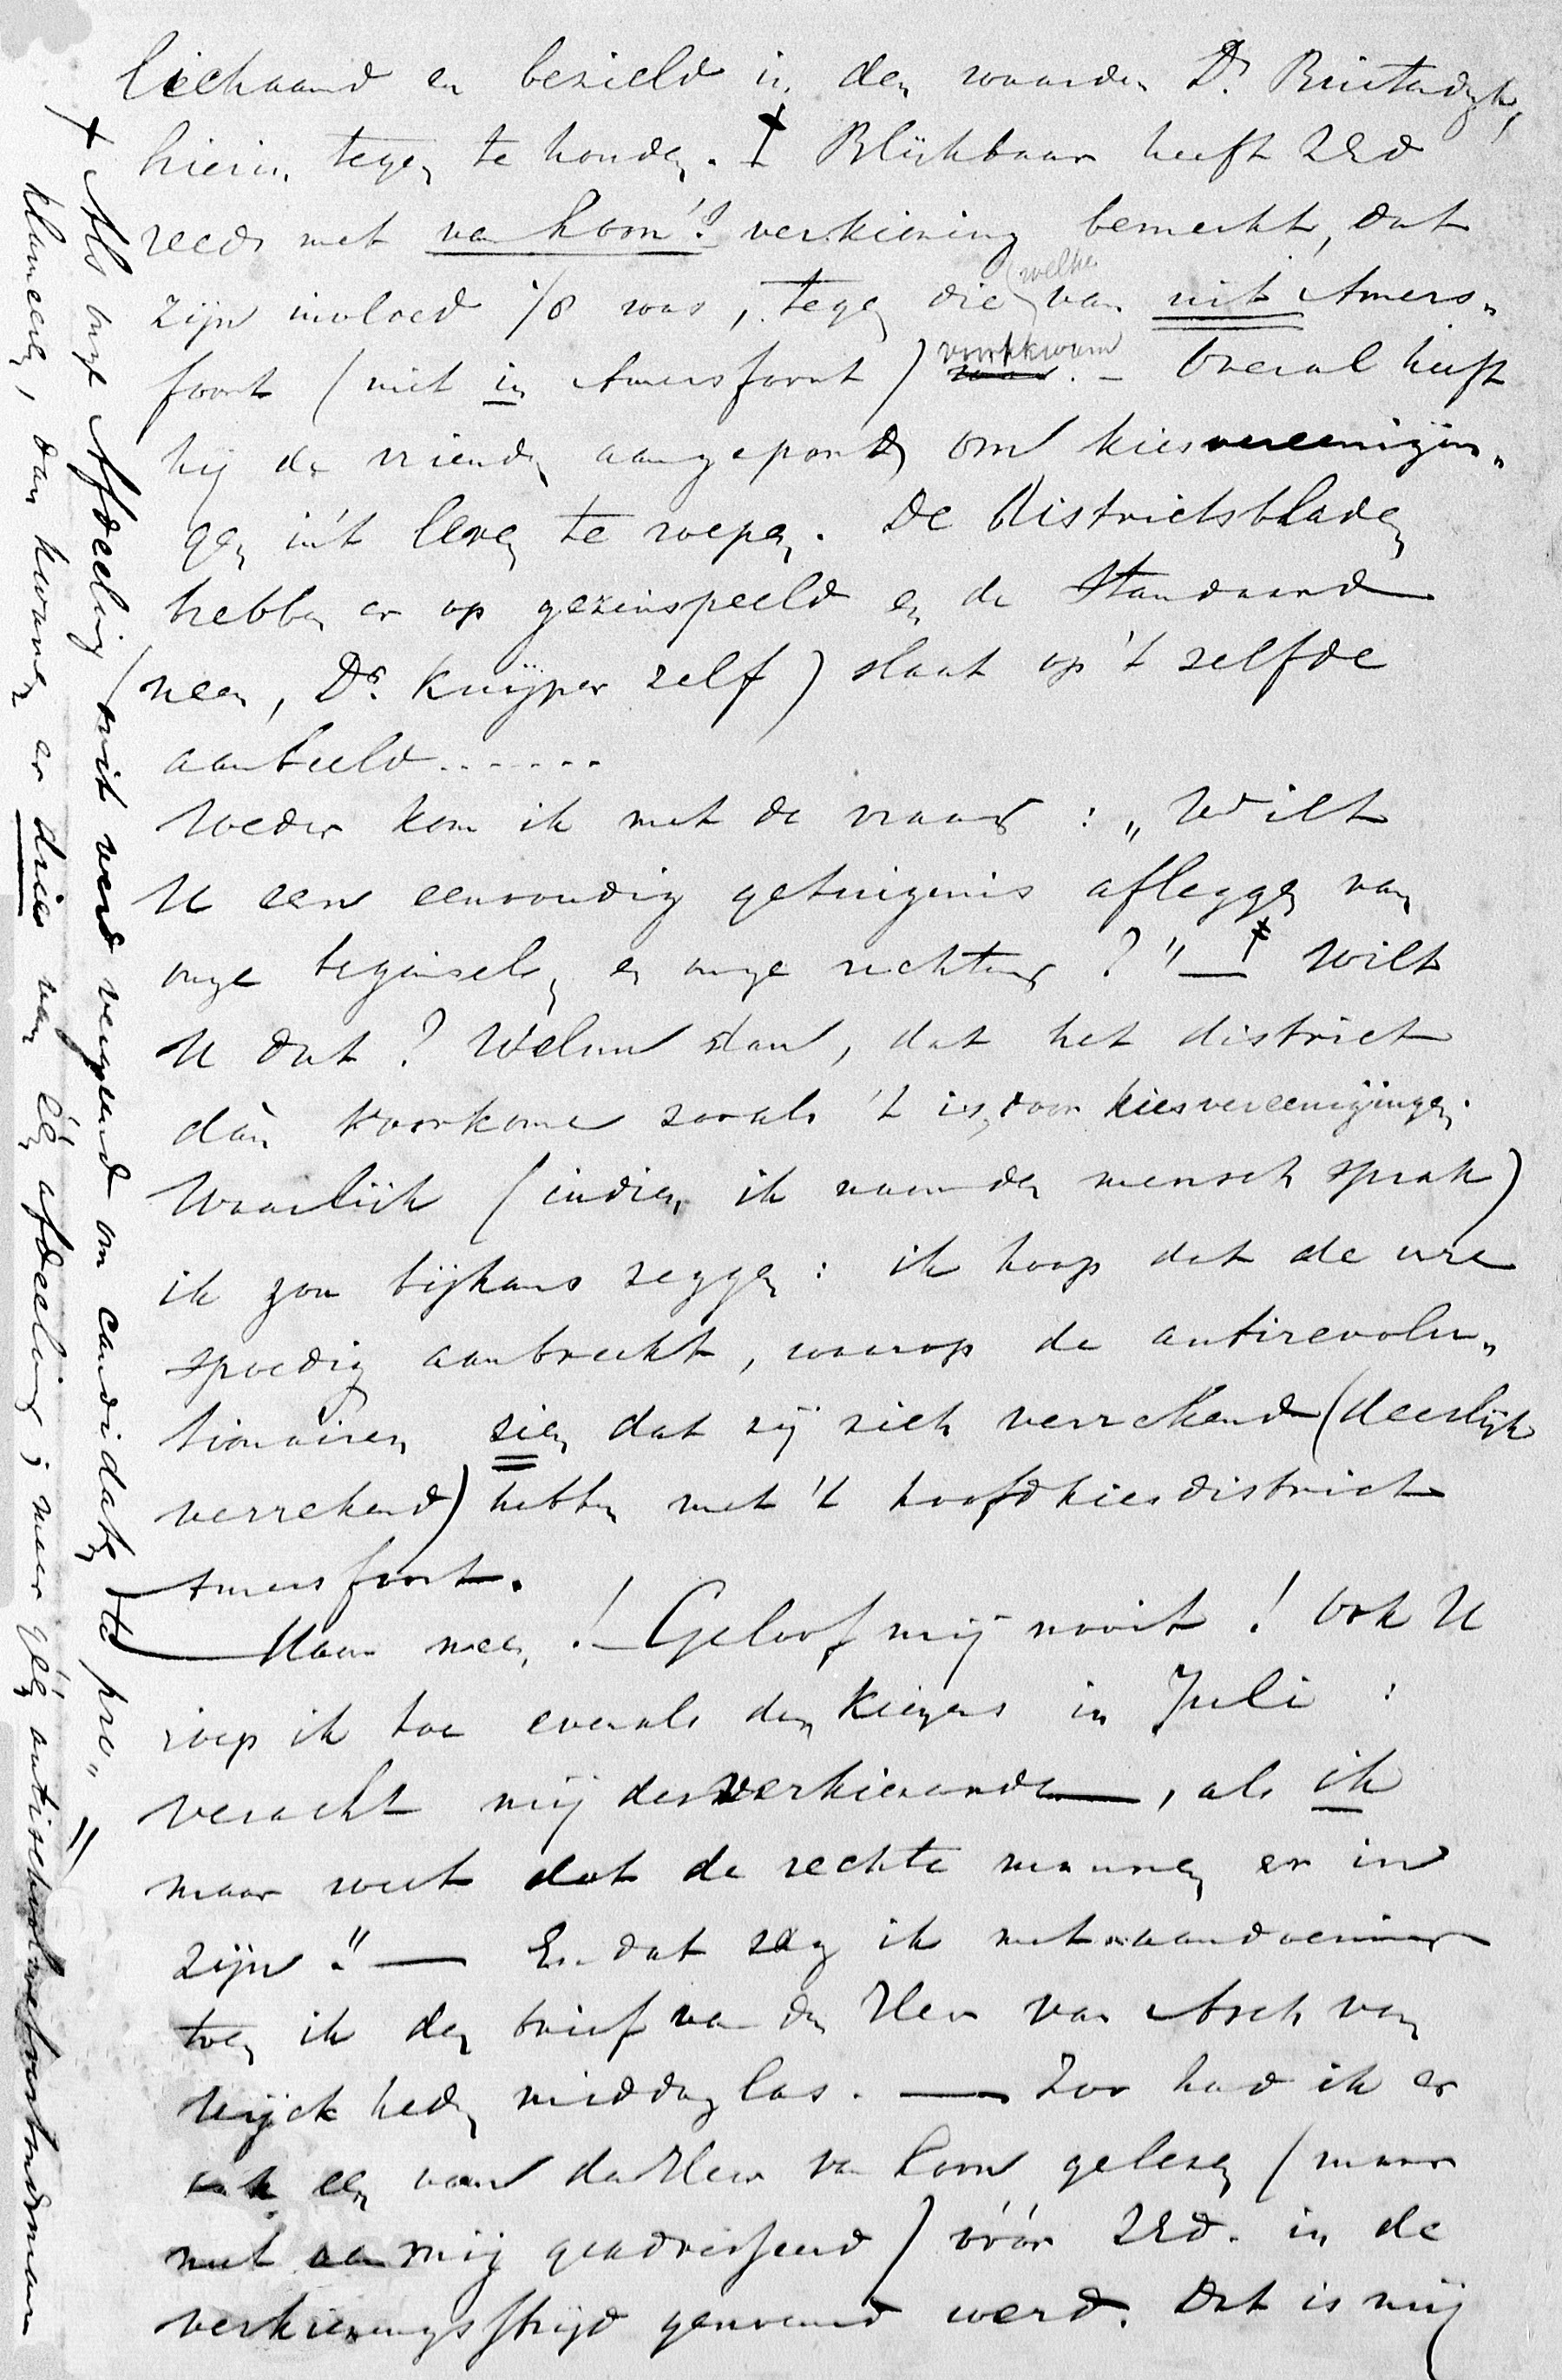 lichaamd en bezield in den waarden Dr. Bruitendijk,
hierin tegen te houden. ‡ Blijkbaar heeft ZEd
reeds met van Loon's verkiezing bemerkt, dat
zijn invloed % was, tegen die (welke) van uit Amers„
foort (niet in Amersfoort) voortkwam. — Overal heeft
hij de vrienden aangepord om kiesvereenigin„
gen in 't leven te roepen. De Districtsbladen
hebben er op gezinspeeld en de Standaard
(neen, Dr. Kuijper zelf) slaat op 't zelfde
aanbeeld.......
Weder kom ik met de vraag: „Wilt
U een eenvoudig getuigenis afleggen van
onze beginselen en onze richting?" — ‡ Wilt
U dat? Welnu dan, dat het district
dàn voorkome zooals 't is, door kiesvereenigingen.
Waarlijk (indien ik naar den mensch sprak)
ik zou bijkans zeggen: ik hoop dat de ure
spoedig aanbreekt, waarop de antirevolu„
tionairen zien dat zij zich verrekend (deerlijk
verrekend) hebben met 't hoofdkiesdistrict
Amersfoort.
Maar neen! — Geloof mij nooit! Ook U
roep ik toe evenals den kiezers in Juli:
veracht mij desverkiezende, als ik
maar weet dat de rechte mannen er in
zijn." — En dat zeg ik met aandoening
toen ik den brief van den Heer van Asch van
Wijck heden middag las. — Zoo had ik er
ook een van den Heer van Loon gelezen (maar
niet aan mij geadresseerd) vóór ZEd. in de
verkiezingsstrijd genoemd werd. Dat is mij
‡ Als onze Afdeeling ooit werd vergund om candidaten te pro„
klameeren, dan kwamen er drie van één afdeeling; maar géén antischoolwetverbondman